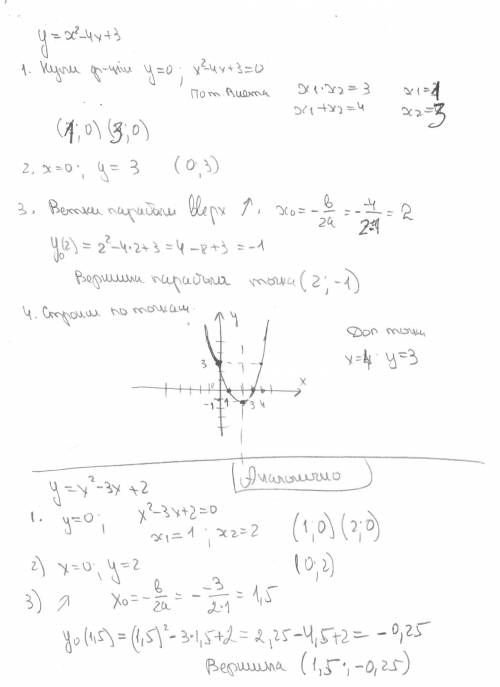 y=x²-4x+3
1. Нули ф-ции y=0; x²-4x+3=0
По т. Виета x1·x2=3 x1=1
x1+x2=4 x2=3
(1;0) (3;0)
2. x=0; y=3 (0;3)
3. Ветки параболы вверх ↑. x0=-b/2a=-(-4)/2·1=2
y0(2)=2²-4·2+3=4-8+3=-1
Вершина параболы точка (2;-1)
4. Строим по точкам
y
Доп точка
x=4 y=3
3
0
x
-1 1 3 4
Аналогично
y=x²-3x+2
1. y=0; x²-3x+2=0
x1=1; x2=2 (1;0) (2;0)
2) x=0; y=2 (0;2)
3) ↗ x0=-b/2a=-(-3)/2·1=1,5
y0(1,5)=(1,5)²-3·1,5+2=2,25-4,5+2=-0,25
Вершина (1,5;-0,25)